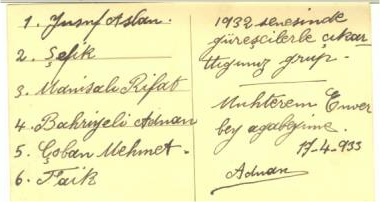 1. Yusuf Aslan.
2. Şefik
3. Manisalı Rifat
4. Bahriyeli Adnan
5. Çoban Mehmet.
6. Faik
1932 senesinde
güreşcilerle çıkar
ttığımız grup.
Muhterem Enver
bey ağabeyime.
17-4-933
Adnan